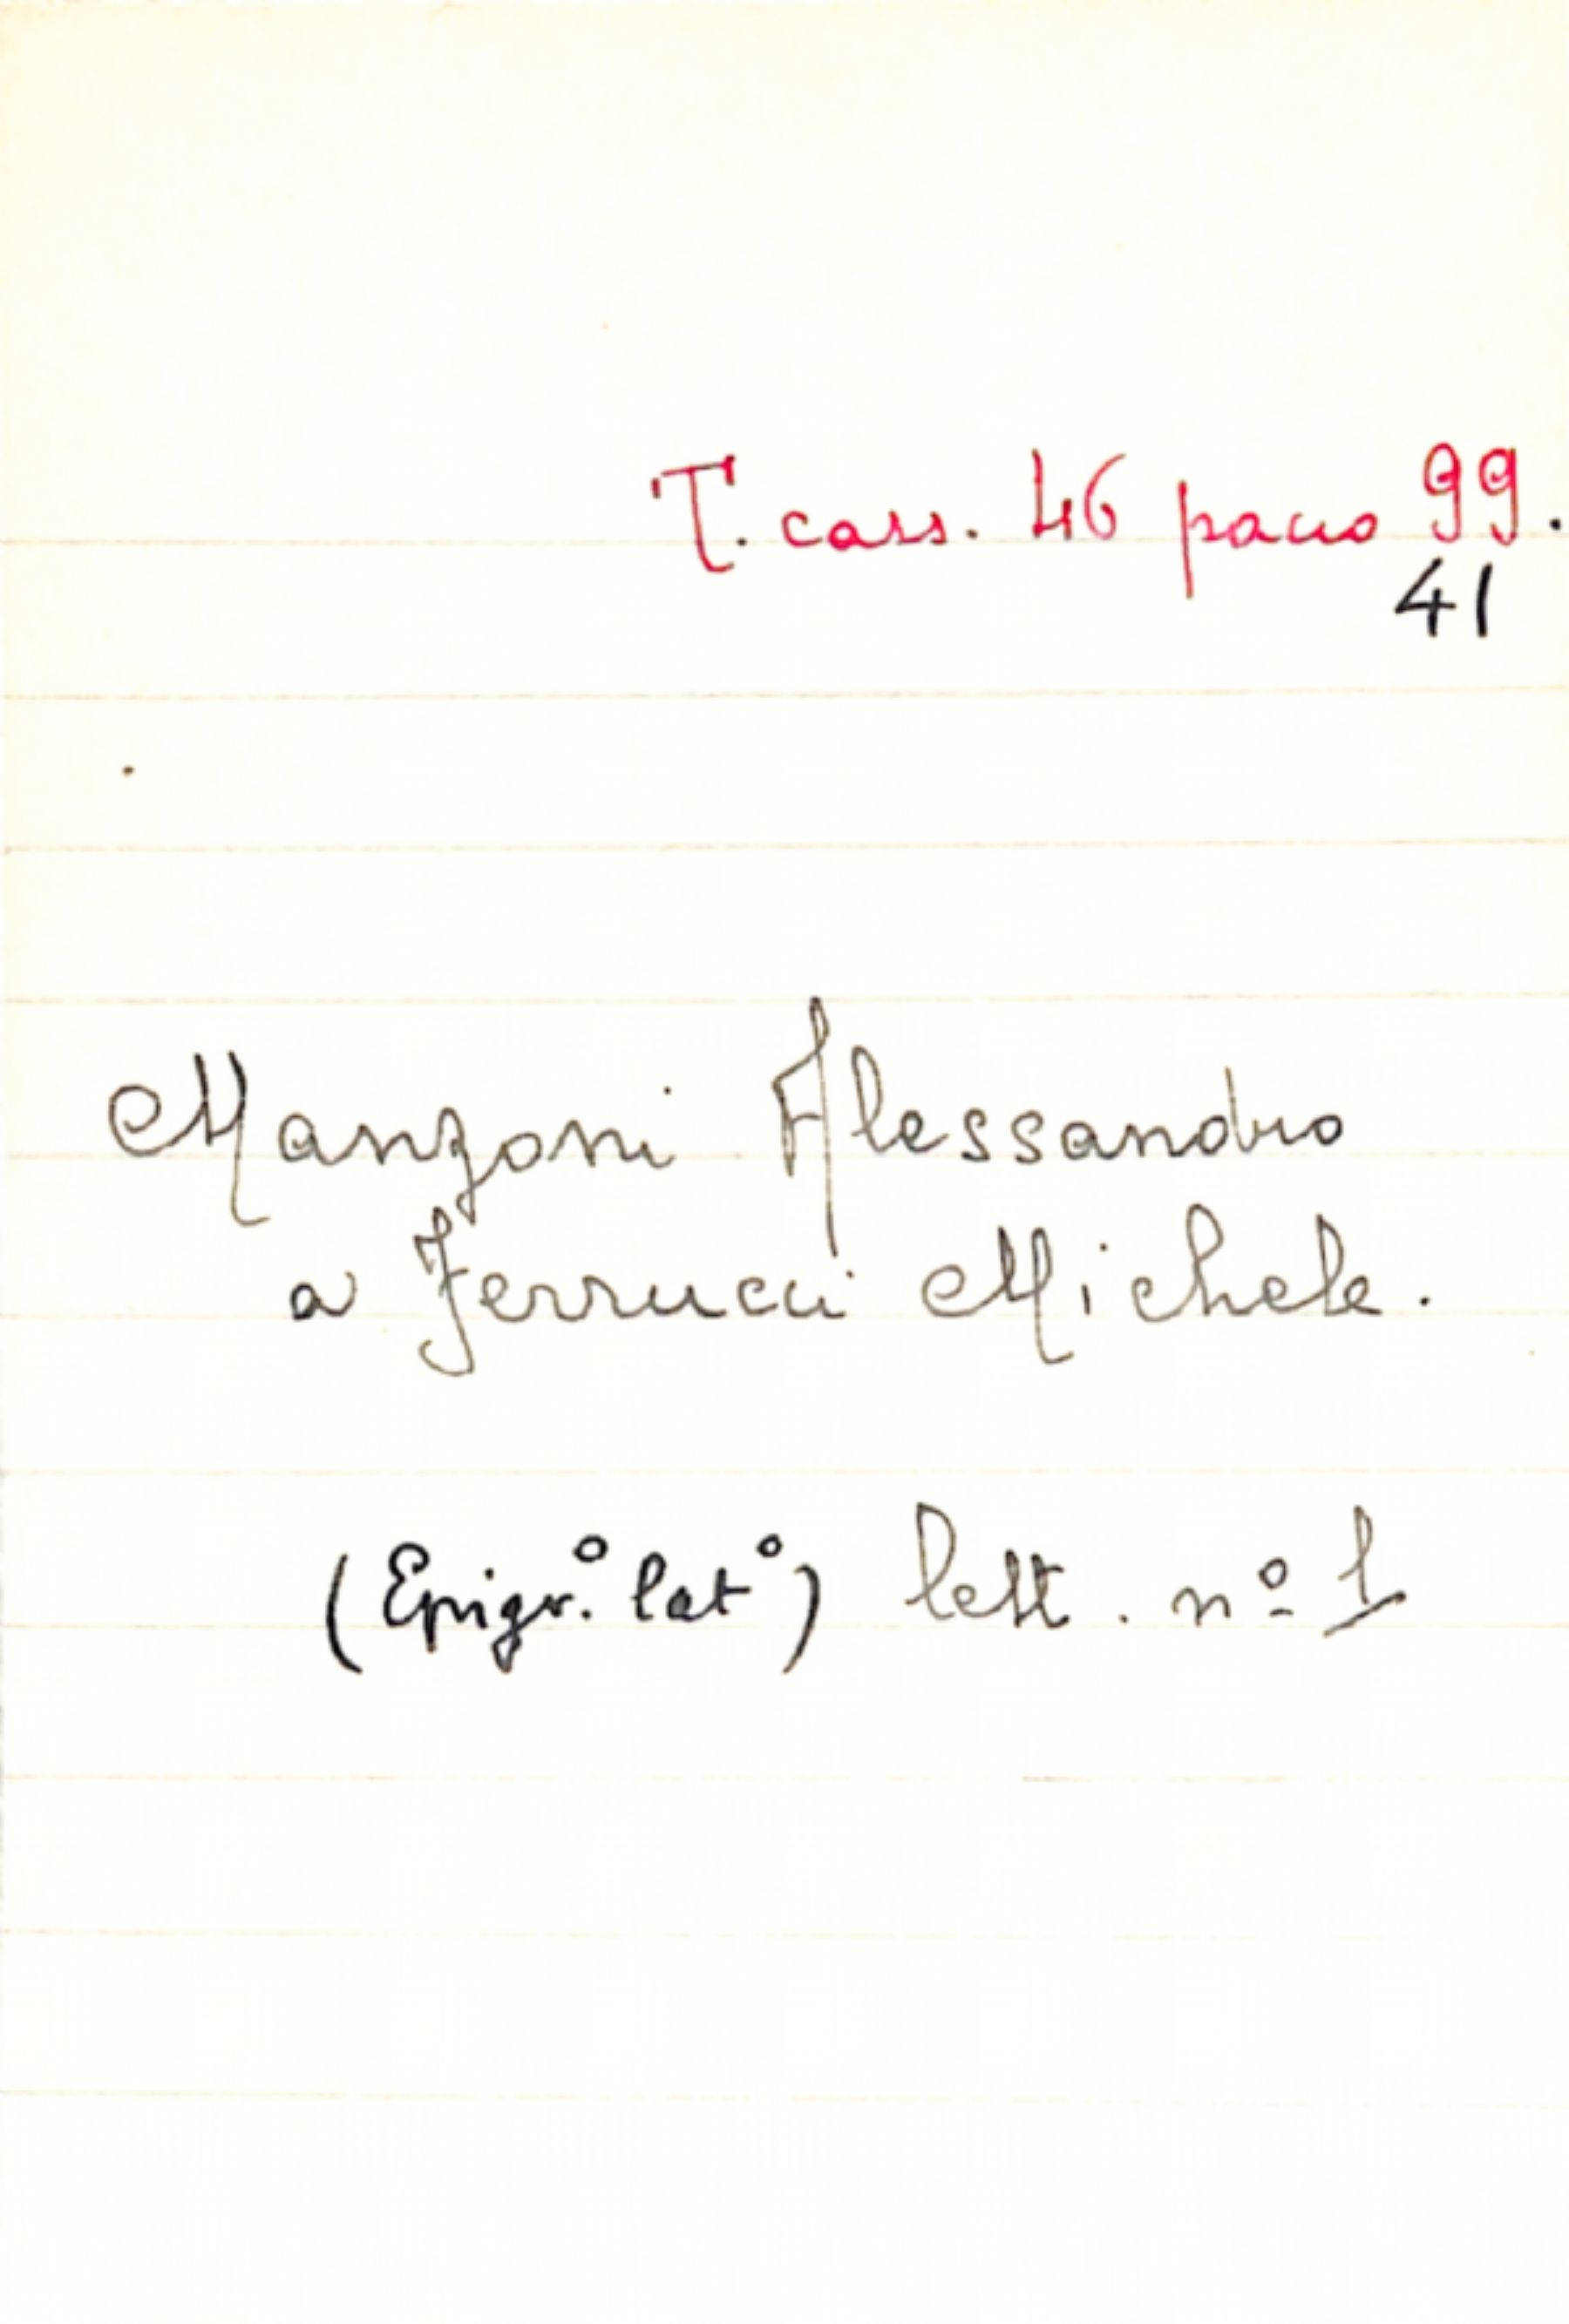 T. cass. 46 pacco 99.
41
Manzoni Alessandro
a Ferrucci Michele.
(Epigr.º latº) lett. nº 1